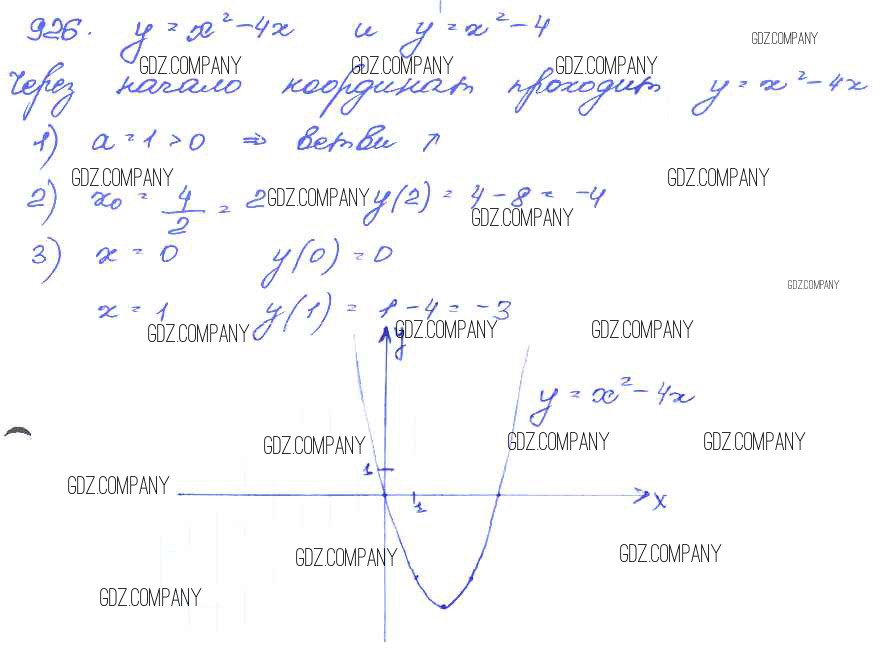 926. y = x² - 4x и y = x² - 4
GDZ.COMPANY
GDZ.COMPANY GDZ.COMPANY GDZ.COMPANY
Через начало координат проходит y = x² - 4x
1) a = 1 > 0 ⇒ ветви ↑
GDZ.COMPANY GDZ.COMPANY
2) x₀ = 4/2 = 2 GDZ.COMPANY y(2) = 4 - 8 = -4
GDZ.COMPANY
3) x = 0 y(0) = 0
GDZ.COMPANY
x = 1 y(1) = 1 - 4 = -3
GDZ.COMPANY GDZ.COMPANY GDZ.COMPANY
y
y = x² - 4x
GDZ.COMPANY GDZ.COMPANY GDZ.COMPANY
1
GDZ.COMPANY
1 x
GDZ.COMPANY GDZ.COMPANY
GDZ.COMPANY